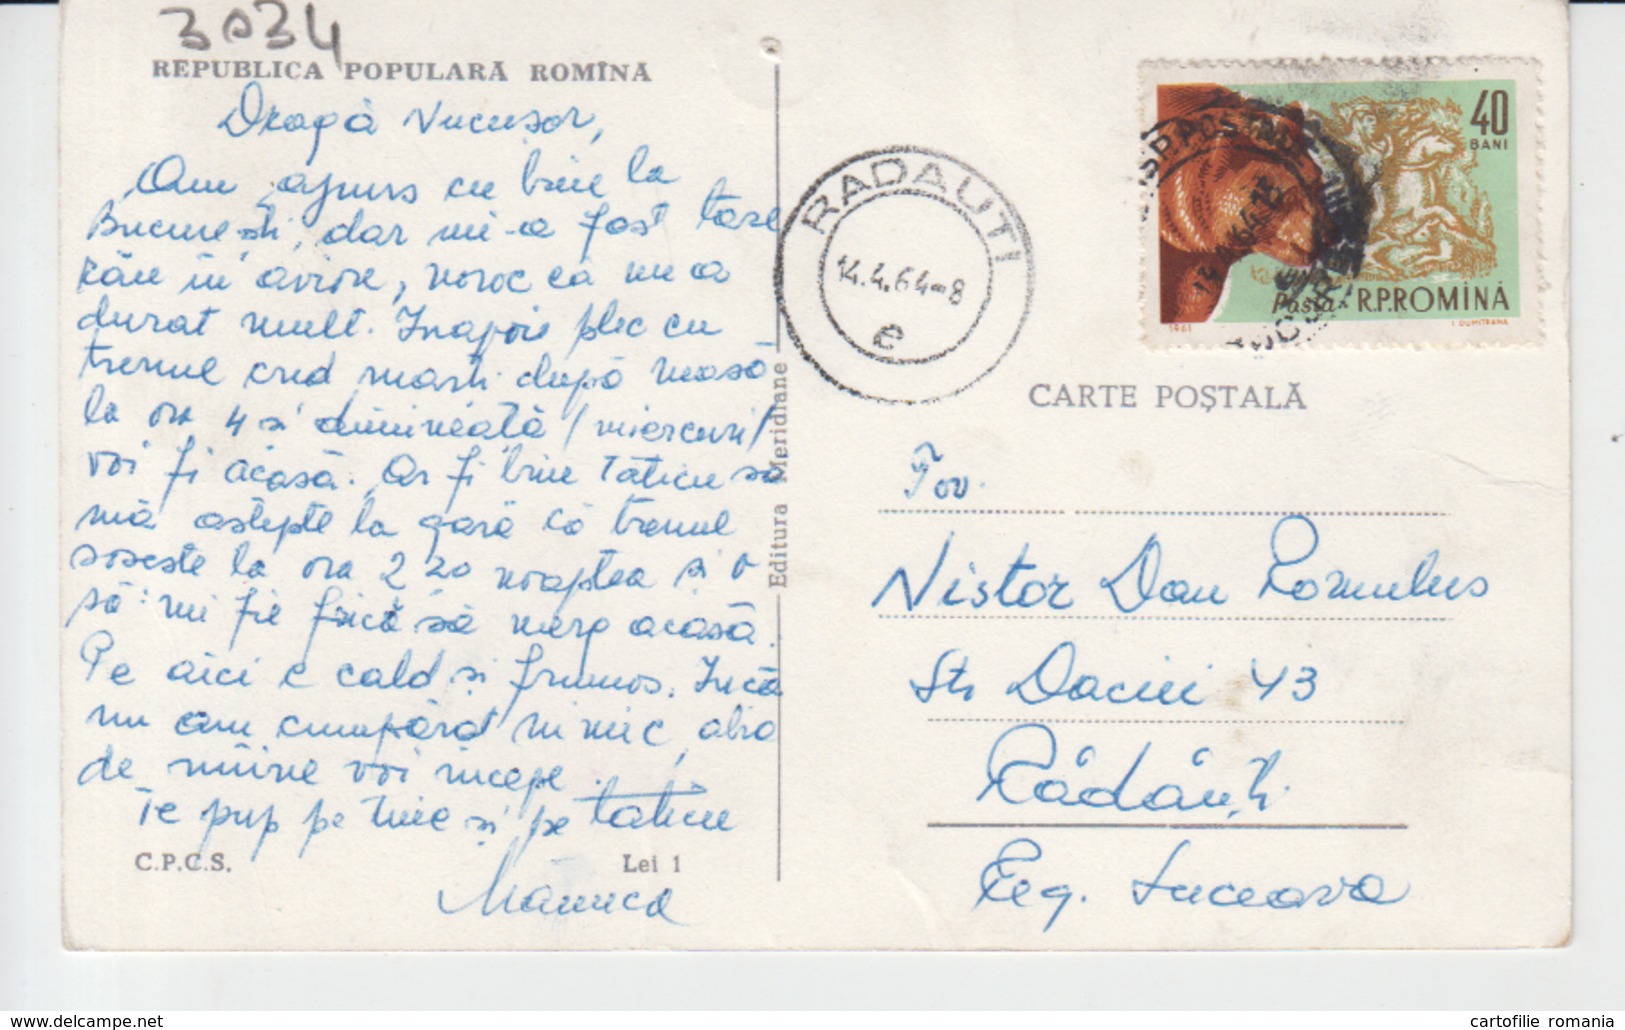 3034
REPUBLICA POPULARĂ ROMÎNA
Dragă Nucușor,
Am ajuns cu bine la
București, dar mi-a fost tare
rău în avion, noroc că nu a
durat mult. Înapoi plec cu
trenul cred marți după masă
la ora 4 și dimineață /miercuri/
voi fi acasă. Ar fi bine Tăticu să
mă aștepte la gară că trenul
sosește la ora 2 20 noaptea și o
să-mi fie frică să merg acasă.
Pe aici e cald și frumos. Încă
nu am cumpărat nimic, abia
de mîine voi începe.
Te pup pe tine și pe tăticu
C.P.C.S. Lei 1
Mămica
Editura Meridiane
RADAUTI
14.4.64-8
e
40
BANI
Posta R.P.ROMÎNĂ
1961 I. DUMITRANA
CARTE POȘTALĂ
Tov.
Nistor Dan Romulus
Str Daciei 43
Rădăuți
Reg. Suceava
www.delcampe.net cartofilie romania